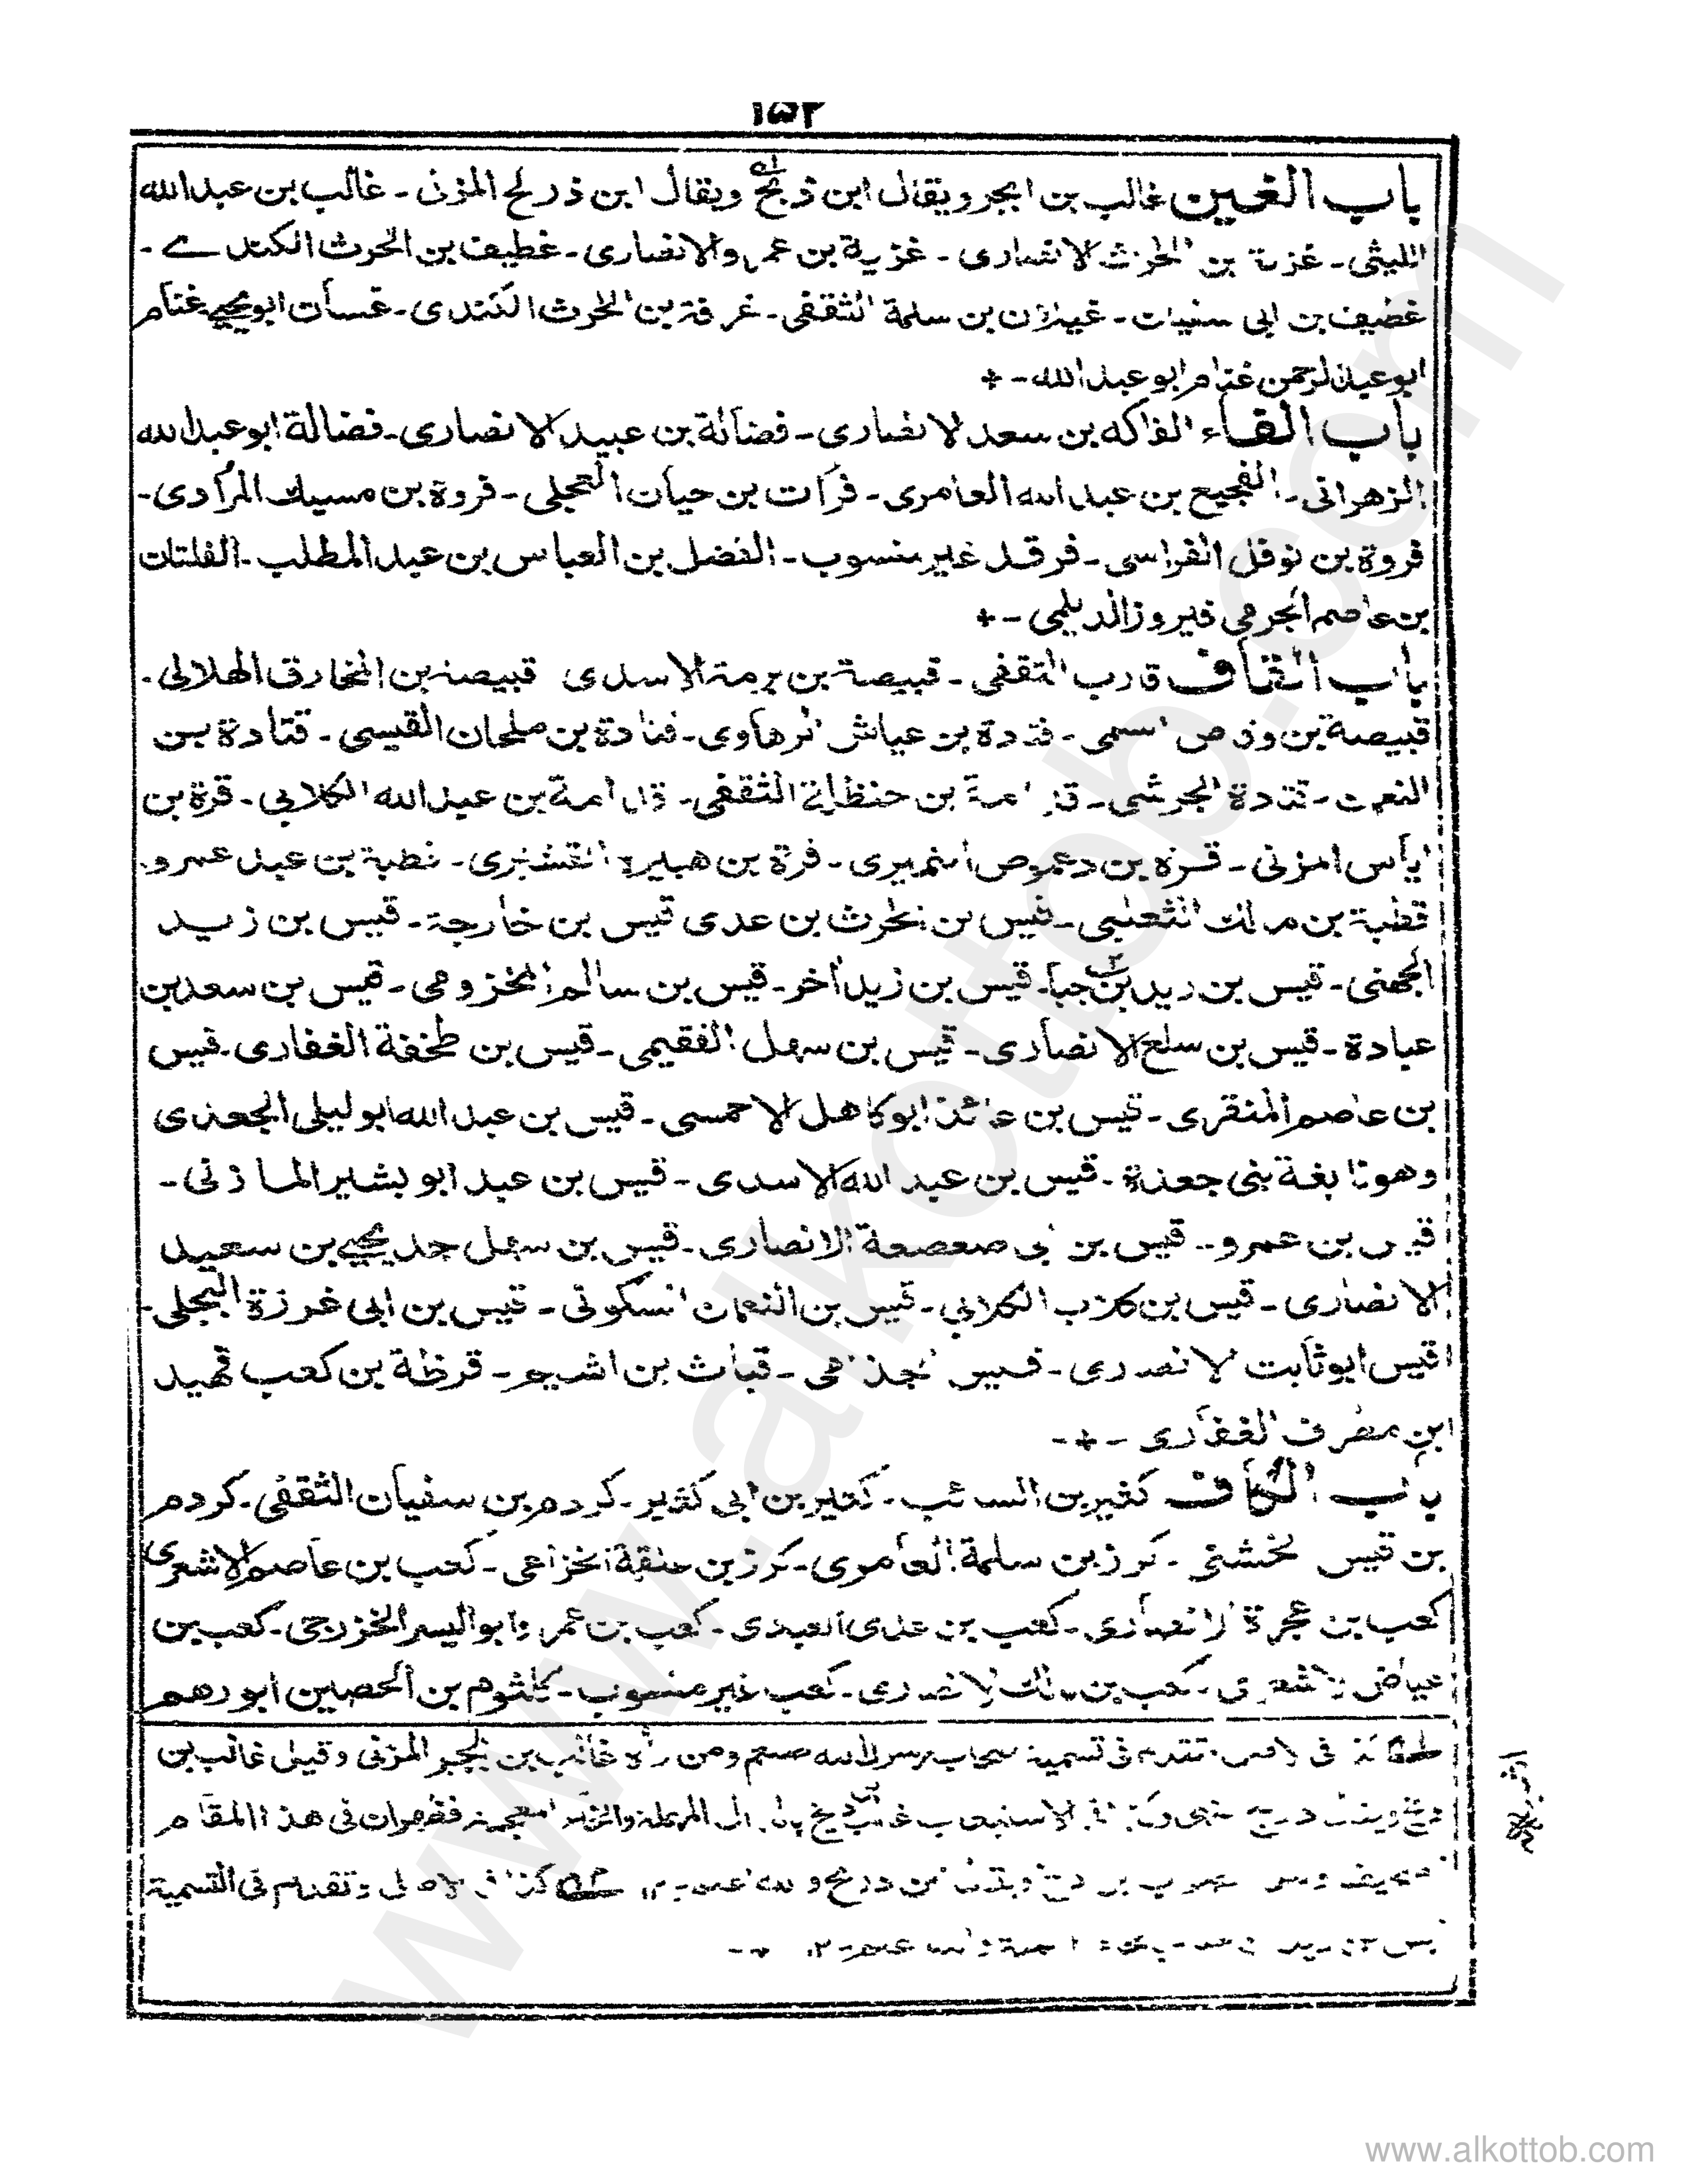 ١٥٢
باب الغين غالب بن ابجر ويقال ابن ذيخ ويقال ابن ذريح المزنى - غالب بن عبدالله
الليثى - غزية بن الحرث الانصارى - غزية بن عمرو الانصارى - غطيف بن الحرث الكندے -
غضيف بن ابى سفيان - غيلان بن سلمة الثقفى - غرفة بن الحرث الكندى - غسان ابو يحيے غنام
ابو عبد الرحمن غنام ابو عبد الله - +
باب الفاء الفاكه بن سعد الانصارى - فضالة بن عبيد الانصارى - فضالة ابو عبد الله
الزهرانى - الفجيع بن عبد الله العامرى - فرات بن حيان العجلى - فروة بن مسيك المرادى -
فروة بن نوفل الفراسى - فرقد غير منسوب - الفضل بن العباس بن عبد المطلب - الفلتان
بن عاصم الجرمى فيروز الديلمى - +
باب القاف قارب الثقفى - قبيصة بن برمة الاسدى قبيصة بن المخارق الهلالى -
قبيصة بن وقاص السلمى - قتادة بن عياش الرهاوى - قتادة بن ملحان القيسى - قتادة بن
النعمان - قتادة الجرشى - قدامة بن حنظلة الثقفى - قدامة بن عبد الله الكلابى - قرة بن
اياس المزنى - قرة بن دعموص النميرى - قرة بن هبيرة القشيرى - قطبة بن عبد عمرو -
قطبة بن مالك الثعلبى - قيس بن الحرث بن عدى قيس بن خارجة - قيس بن زيد
الجهنى - قيس بن زيد بن جبا - قيس بن زيد اخر - قيس بن سالم المخزومى - قيس بن سعد بن
عبادة - قيس بن سلع الانصارى - قيس بن سهل الفقيمى - قيس بن طخفة الغفارى - قيس
بن عاصم المنقرى - قيس بن عائذ ابو كاهل الاحمسى - قيس بن عبد الله ابو ليلى الجعدى
وهو نابغة بنى جعدة - قيس بن عبد الله الاسدى - قيس بن عبد ابو بشير المازنى -
قيس بن عمرو - قيس بن ابى صعصعة الانصارى - قيس بن سهل جد يحيے بن سعيد
الانصارى - قيس بن كلاب الكلابى - قيس بن النعمان السكونى - قيس بن ابى غرزة البجلى -
قيس ابو ثابت الانصارى - قيس الجذامى - قباث بن اشيم - قرظة بن كعب قهيد
ابن مطرف الغفارى - + -
باب الكاف كثير بن السائب - كثير بن ابى كثير - كردم بن سفيان الثقفى - كردم
بن قيس الخشنى - كرز بن سلمة العامرى - كرز بن علقمة الخزاعى - كعب بن عاصم الاشعرى
كعب بن عجرة الانصارى - كعب بن عدى العبدى - كعب بن عمرو ابو اليسر الخزرجى - كعب بن
عياض الاشعرى - كعب بن مالك الانصارى - كعب غير منسوب - كلثوم بن الحصين ابو رهم
كذا فى الاصل تقدم فى تسمية اصحاب رسول الله صلعم ومن راه غالب بن ابجر المزنى وقيل غالب بن
ذيخ ويقال ذريح المعجمة فظهر ان فى هذا المقام
كذا فى الاصل وتقدم فى التسمية
قيس بن زيد
www.alkottob.com
www.alkottob.com